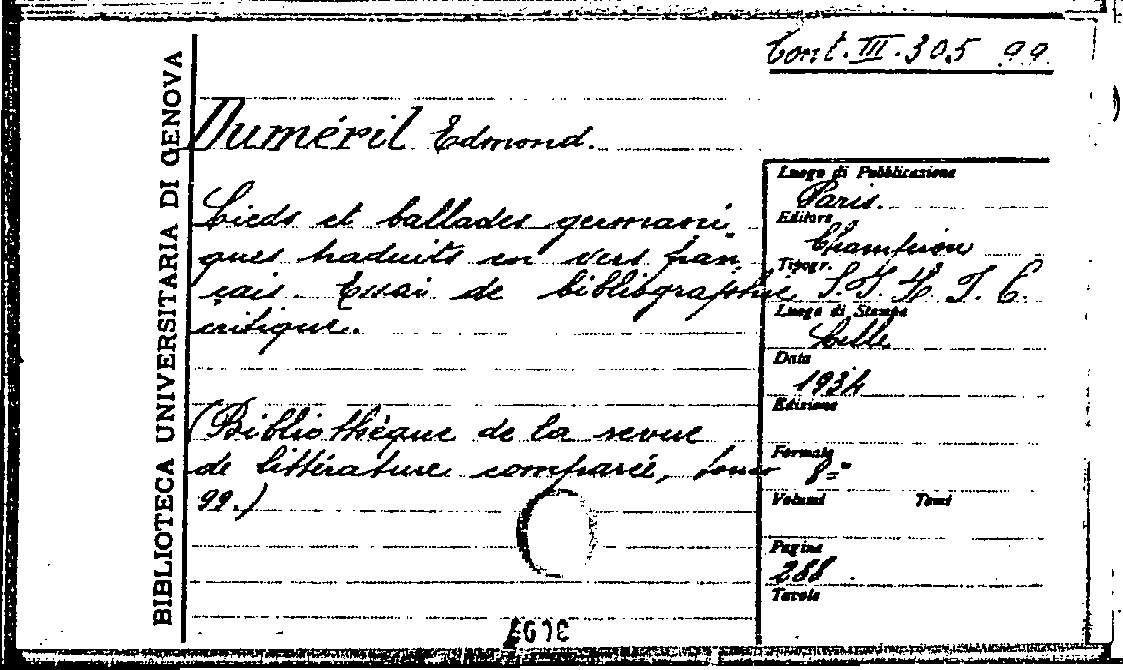 Cont. III. 305 99
BIBLIOTECA UNIVERSITARIA DI GENOVA
Duméril Edmond.
Lieds et ballades germani-
ques traduits en vers fran-
çais. Essai de bibliographie
critique.
(Bibliothèque de la revue
de littérature comparée, tome
99.)
Luogo di Pubblicazione
Paris.
Editore
Champion
Tipogr.
Luogo di Stampa
Lille
Data
1934
Edizione
Formato
8=°
Volumi Tomi
Pagine
288
Tavole